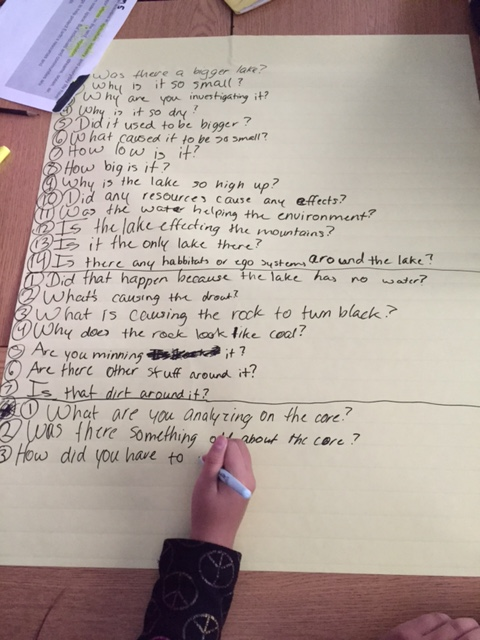 Was there a bigger lake?
Why is it so small?
Why are you investigating it?
Why is it so dry?
5 Did it used to be bigger?
6 What caused it to be so small?
7 How low is it?
8 How big is it?
9 Why is the lake so high up?
10 Did any resources cause any effects?
11 Was the water helping the environment?
12 Is the lake effecting the mountains?
13 Is it the only lake there?
14 Is there any habbitats or ego systems around the lake?
1 Did that happen because the lake has no water?
2 What's causing the drout?
3 What is causing the rock to turn black?
4 Why does the rock look like coal?
5 Are you minning it?
6 Are there other stuff around it?
7 Is that dirt around it?
1 What are you analyzing on the core?
2 Was there something about the core?
3 How did you have to